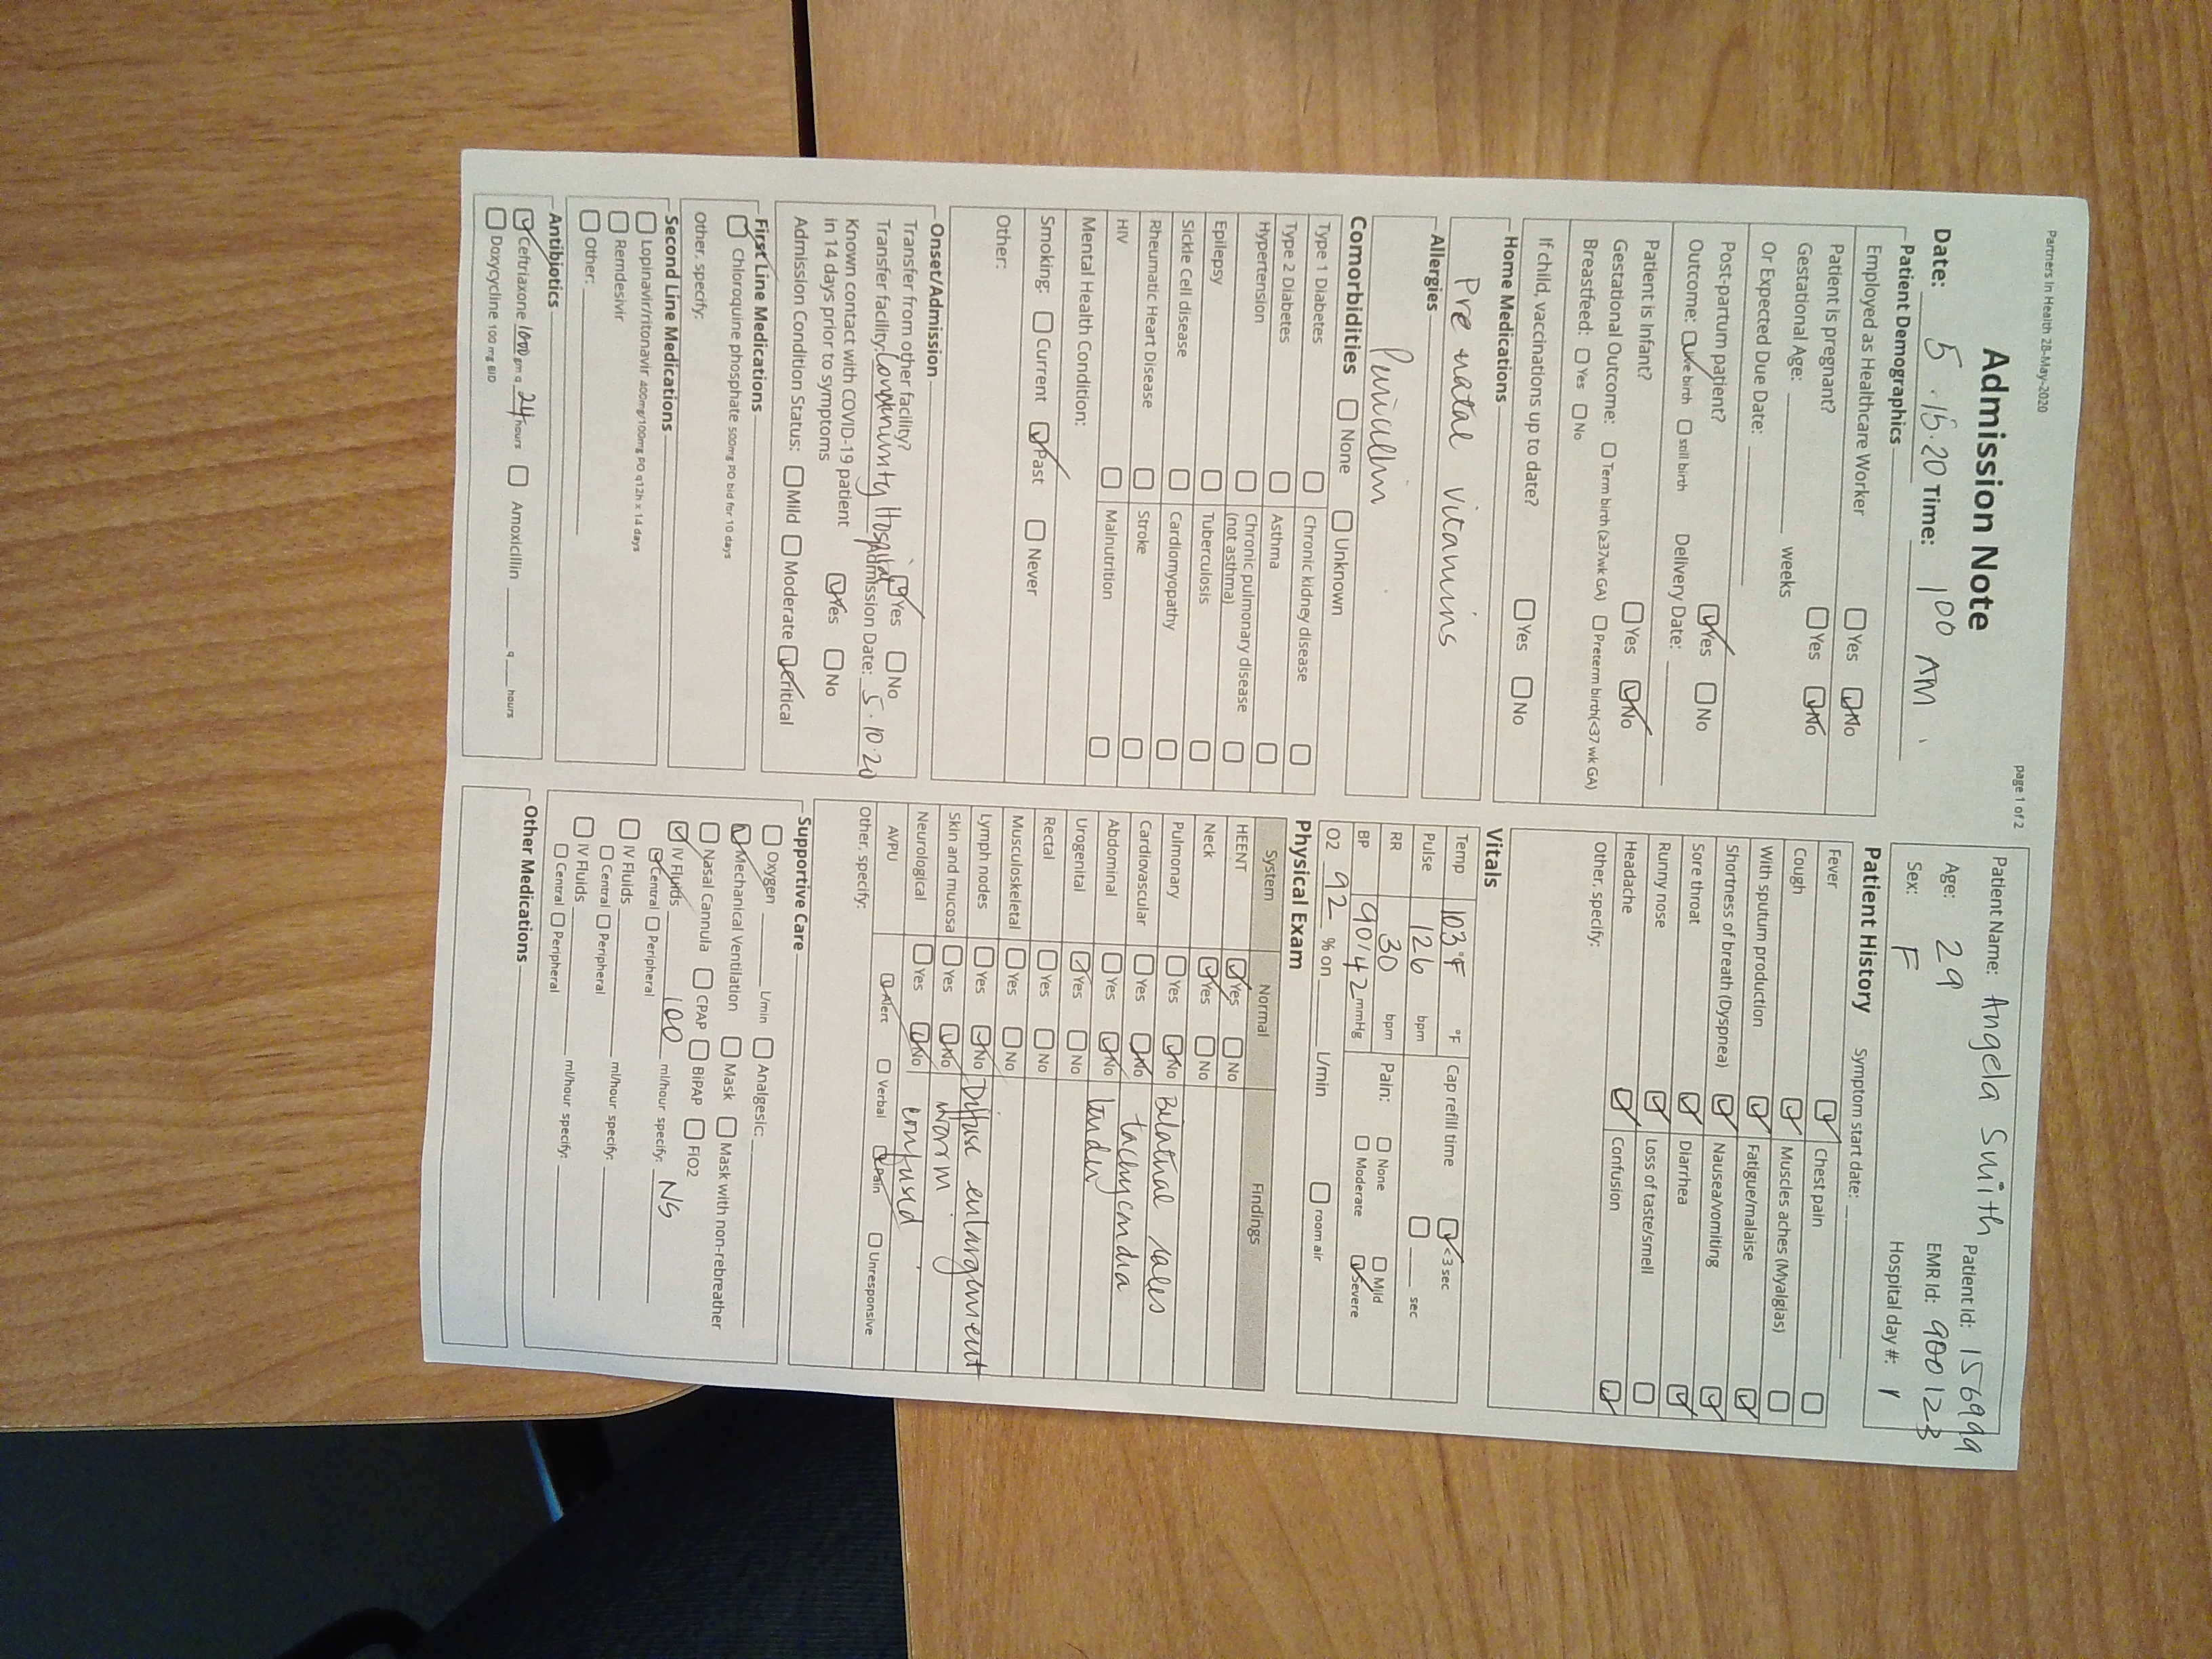 Partners In Health 28-May-2020
page 1 of 2
Admission Note
Date: 5.15.20 Time: 1 00 AM.
Patient Demographics
Employed as Healthcare Worker Yes No
Patient is pregnant? Yes No
Gestational Age: weeks
Or Expected Due Date:
Post-partum patient? Yes No
Outcome: Live birth still birth Delivery Date:
Patient is Infant? Yes No
Gestational Outcome: Term birth (≥37wk GA) Preterm birth(<37 wk GA)
Breastfeed: Yes No
If child, vaccinations up to date? Yes No
Home Medications
Prenatal vitamins
Allergies
Penicillin
Comorbidities None Unknown
Type 1 Diabetes Chronic kidney disease
Type 2 Diabetes Asthma
Hypertension Chronic pulmonary disease
(not asthma)
Epilepsy Tuberculosis
Sickle Cell disease Cardiomyopathy
Rheumatic Heart Disease Stroke
HIV Malnutrition
Mental Health Condition:
Smoking: Current Past Never
Other:
Onset/Admission
Transfer from other facility? Yes No
Transfer facility: Community Hospital Admission Date: 5.10.20
Known contact with COVID-19 patient
in 14 days prior to symptoms Yes No
Admission Condition Status: Mild Moderate Critical
First Line Medications
Chloroquine phosphate 500mg PO bid for 10 days
Other, specify:
Second Line Medications
Lopinavir/ritonavir 400mg/100mg PO q12h x 14 days
Remdesivir
Other:
Antibiotics
Ceftriaxone 1000 gm q 24 hours Amoxicillin q hours
Doxycycline 100 mg BID
Patient Name: Angela Smith Patient Id: 156999
Age: 29 EMR Id: 900123
Sex: F Hospital day #: 1
Patient History Symptom start date:
Fever Chest pain
Cough Muscles aches (Myalgias)
With sputum production Fatigue/malaise
Shortness of breath (Dyspnea) Nausea/vomiting
Sore throat Diarrhea
Runny nose Loss of taste/smell
Headache Confusion
Other, specify:
Vitals
Temp 103°F °F Cap refill time <3 sec
Pulse 126 bpm sec
RR 30 bpm Pain: None Mild
BP 90/42 mmHg Moderate Severe
O2 92 % on L/min room air
Physical Exam
System Normal Findings
HEENT Yes No
Neck Yes No
Pulmonary Yes No Bilatural rales
Cardiovascular Yes No tachycardia
Abdominal Yes No tender
Urogenital Yes No
Rectal Yes No
Musculoskeletal Yes No
Lymph nodes Yes No Diffuse enlargement
Skin and mucosa Yes No warm
Neurological Yes No confused
AVPU Alert Verbal Pain Unresponsive
Other, specify:
Supportive Care
Oxygen L/min Analgesic:
Mechanical Ventilation Mask Mask with non-rebreather
Nasal Cannula CPAP BIPAP FIO2
IV Fluids 100 ml/hour specify: NS
Central Peripheral
IV Fluids ml/hour specify:
Central Peripheral
IV Fluids ml/hour specify:
Central Peripheral
Other Medications